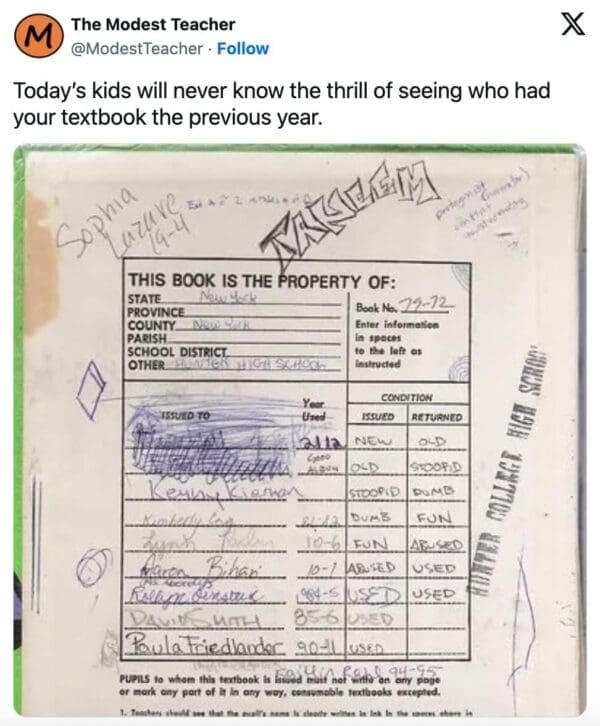 M
The Modest Teacher
@ModestTeacher · Follow
X
Today's kids will never know the thrill of seeing who had
your textbook the previous year.
Sophia
Lazare
19-4
TAKEEM
THIS BOOK IS THE PROPERTY OF:
STATE New York
PROVINCE
COUNTY New York
PARISH
SCHOOL DISTRICT
OTHER HUNTER HIGH SCHOOL
Book No. 79-72
Enter information
in spaces
to the left as
instructed
ISSUED TO
Year
Used
CONDITION
ISSUED
RETURNED
NEW OLD
OLD STOOPID
Kenny Kiernan STOOPID DUMB
Kimberly DUMB FUN
Lynn 10-6 FUN ABUSED
Aaron Bihari 10-7 ABUSED USED
USED USED
DAVID SMITH USED
Paula Friedlander 90-11 USED
94-95
HUNTER COLLEGE HIGH SCHOOL
PUPILS to whom this textbook is issued must not write on any page
or mark any part of it in any way, consumable textbooks excepted.
1. Teachers should see that the pupil's name is clearly written in ink in the spaces above in